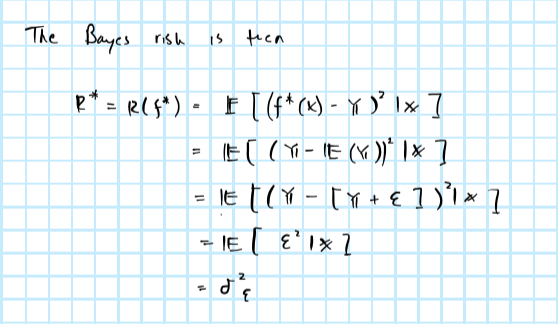 The Bayes risk is then
R* = R(f*) = E [ (f*(x) - Y)² | x ]
= E [ (Y - E (Y))² | x ]
= E [ (Y - [Y + ε])² | x ]
= E [ ε² | x ]
= σ²_ε